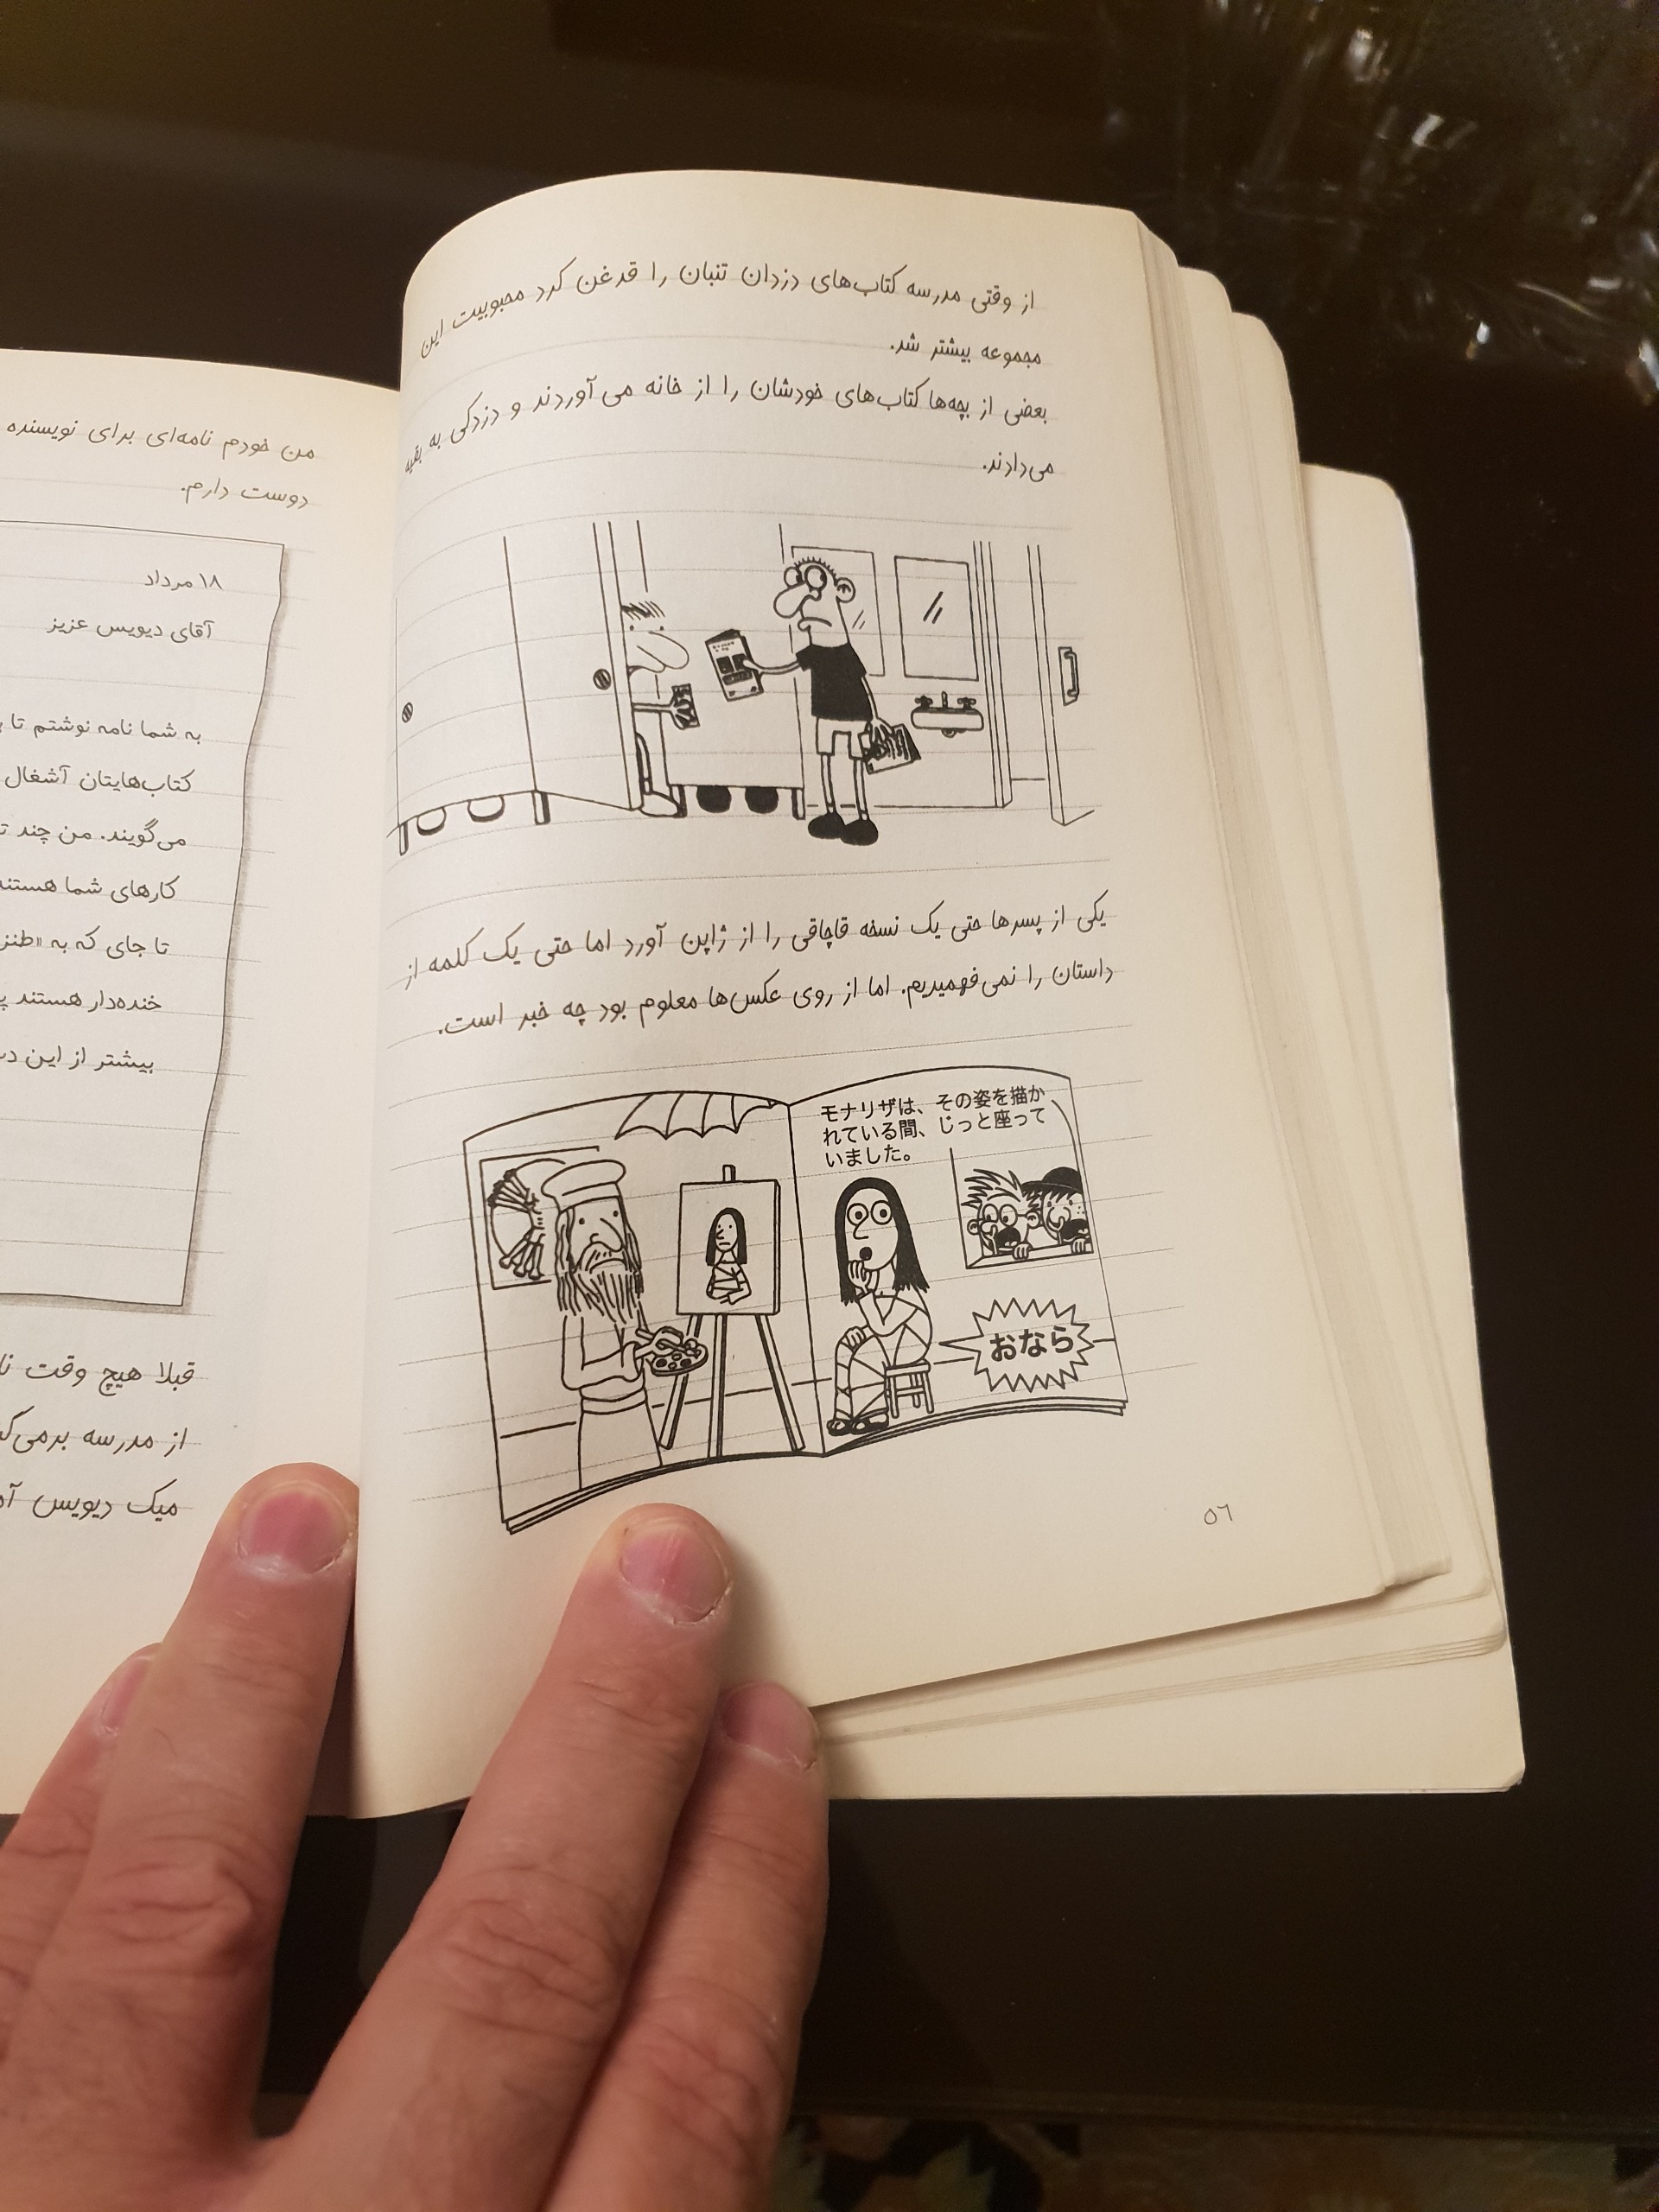 از وقتی مدرسه کتاب‌های دزدان تنبان را قدغن کرد محبوبیت این
مجموعه بیشتر شد.
بعضی از بچه‌ها کتاب‌های خودشان را از خانه می آوردند و دزدکی به بقیه
می‌دادند.
یکی از پسرها حتی یک نسخه قاچاقی را از ژاپن آورد اما حتی یک کلمه از
داستان را نمی‌فهمیدیم. اما از روی عکس‌ها معلوم بود چه خبر است.
モナリザは、その姿を描か
れている間、じっと座って
いました。
おなら
٥٦
من خودم نامه‌ای برای نویسنده
دوست دارم.
۱۸ مرداد
آقای دیویس عزیز
به شما نامه نوشتم تا
کتاب‌هایتان آشغال
می‌گویند. من چند
کارهای شما هستند
تا جای که به «طنز
خنده‌دار هستند
بیشتر از این
قبلا هیچ وقت
از مدرسه
میک دیویس